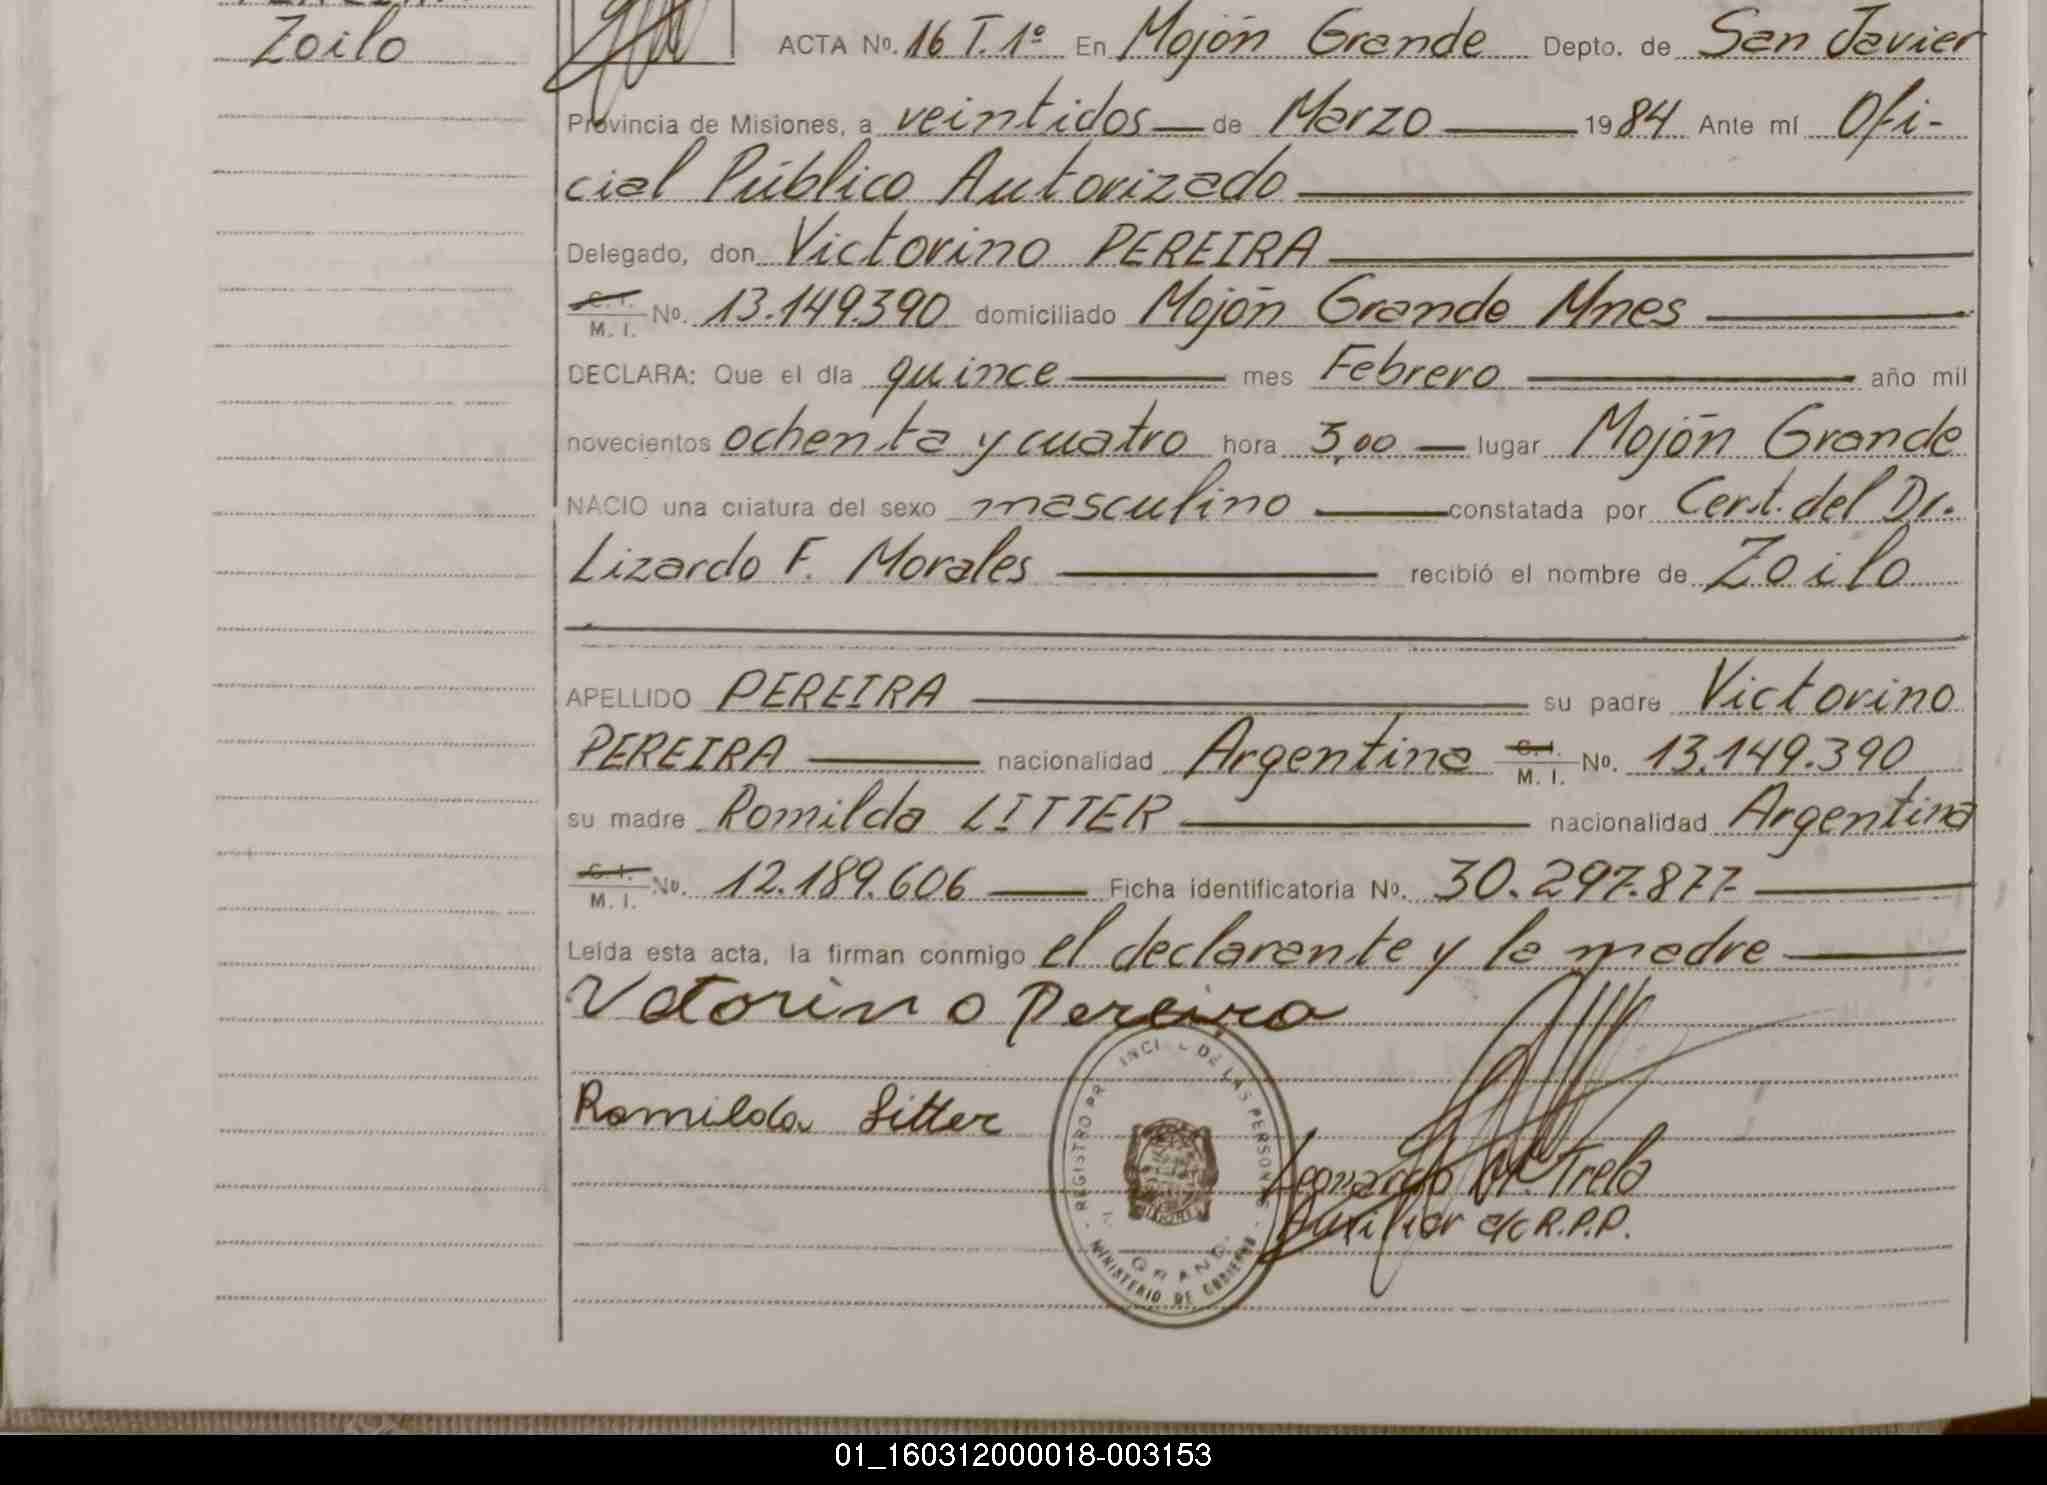 Zoilo
ACTA No. 16 T. 1º En Mojón Grande Depto. de San Javier
Provincia de Misiones, a veintidos de Marzo 1984 Ante mí Ofi-
cial Público Autorizado
Delegado, don Victorino PEREIRA
C. I. M. I. No. 13.149.390 domiciliado Mojón Grande Mnes
DECLARA: Que el día quince mes Febrero año mil
novecientos ochenta y cuatro hora 3,00 lugar Mojón Grande
NACIO una criatura del sexo masculino constatada por Cert. del Dr.
Lizardo F. Morales recibió el nombre de Zoilo
APELLIDO PEREIRA su padre Victorino
PEREIRA nacionalidad Argentina C. I. M. I. No. 13.149.390
su madre Romilda LITTER nacionalidad Argentina
C. I. M. I. No. 12.189.606 Ficha identificatoria No. 30.297.877
Leída esta acta, la firman conmigo el declarante y la madre
Vctorino Pereira
Romilda Litter
REGISTRO PR INCI DE LAS PERSONAS
GRAND
MINISTERIO DE GOBIERNO
Leonardo M. Trela
Auxiliar a/c R.P.P.
01_160312000018-003153